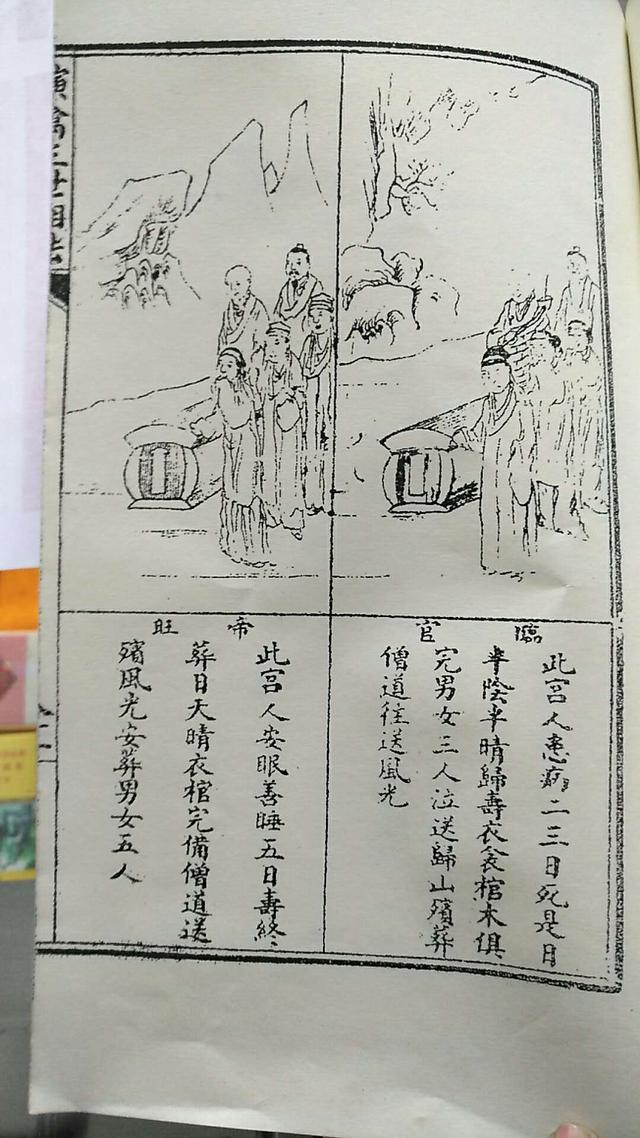 臨官
此宮人患病二三日死是日
半陰半晴歸壽衣衾棺木俱
完男女三人泣送歸山殯葬
僧道往送風光
帝旺
此宮人安眠善睡五日壽終
葬日天晴衣棺完備僧道送
殯風光安葬男女五人
演禽三世相法